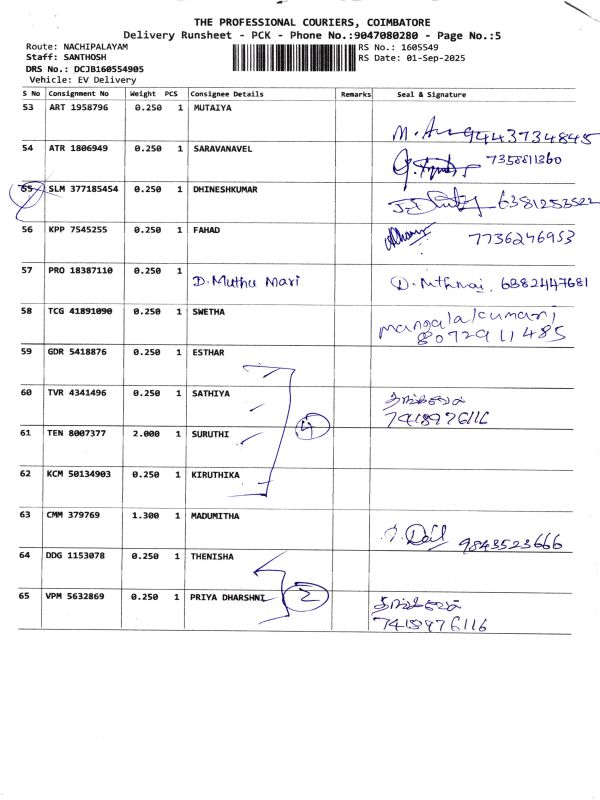 THE PROFESSIONAL COURIERS, COIMBATORE
Delivery Runsheet - PCK - Phone No.:9047080280 - Page No.:5
Route: NACHIPALAYAM RS No.: 1605549
Staff: SANTHOSH RS Date: 01-Sep-2025
DRS No.: DCJB160554905
Vehicle: EV Delivery
S No Consignment No Weight PCS Consignee Details Remarks Seal & Signature
53 ART 1958796 0.250 1 MUTAIYA 9443734845
54 ATR 1806949 0.250 1 SARAVANAVEL 7358811360
55 SLM 377185454 0.250 1 DHINESHKUMAR 6381253522
56 KPP 7545255 0.250 1 FAHAD 7736246953
57 PRO 18387110 0.250 1 D. Muthu Mari 6382447681
58 TCG 41891090 0.250 1 SWETHA mangalakumari
8072911485
59 GDR 5418876 0.250 1 ESTHAR
60 TVR 4341496 0.250 1 SATHIYA
7418976116
61 TEN 8007377 2.000 1 SURUTHI 4
62 KCM 50134903 0.250 1 KIRUTHIKA
63 CMM 379769 1.300 1 MADUMITHA 9843523666
64 DDG 1153078 0.250 1 THENISHA
65 VPM 5632869 0.250 1 PRIYA DHARSHNI 2
7418976116